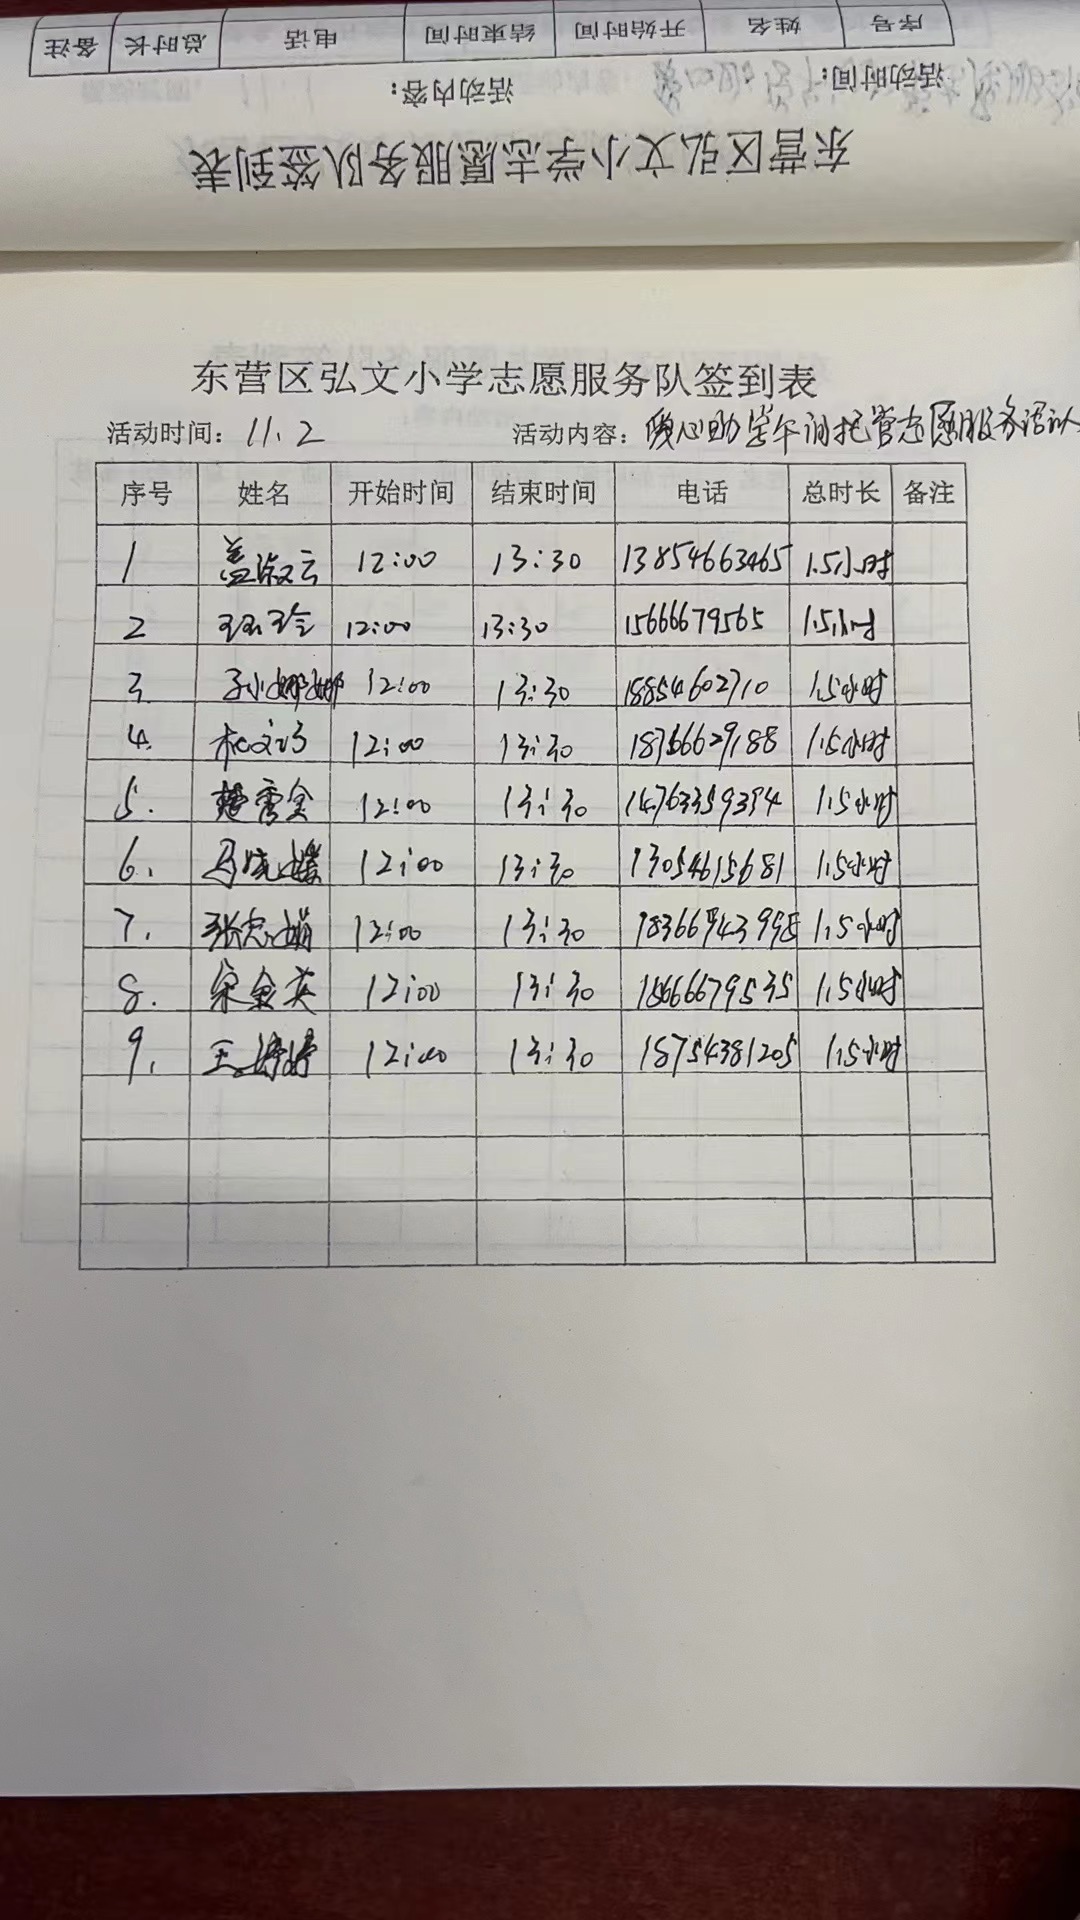 备注 总时长 电话 结束时间 开始时间 姓名 序号
活动内容： 活动时间：
东营区弘文小学志愿服务队签到表
东营区弘文小学志愿服务队签到表
活动时间：11.2 活动内容：暖心助学午间托管志愿服务活动
序号 姓名 开始时间 结束时间 电话 总时长 备注
1 盖淑云 12:00 13:30 13854663465 1.5小时
2 12:00 13:30 15666679565 1.5小时
3. 孙娜娜 12:00 13:30 18854602710 1.5小时
4. 12:00 13:30 18766629188 1.5小时
5. 12:00 13:30 1.5小时
6. 马晓媛 12:00 13:30 13054615681 1.5小时
7. 张忠娟 12:00 13:30 18366943998 1.5小时
8. 宋金英 12:00 13:30 15666679535 1.5小时
9. 王婷婷 12:00 13:30 18754381205 1.5小时